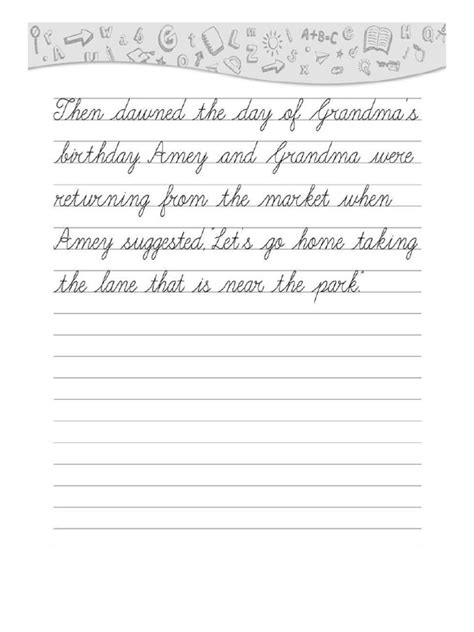 A+B=C
Then dawned the day of Grandma's
birthday. Amey and Grandma were
returning from the market when
Amey suggested, "Let's go home taking
the lane that is near the park."